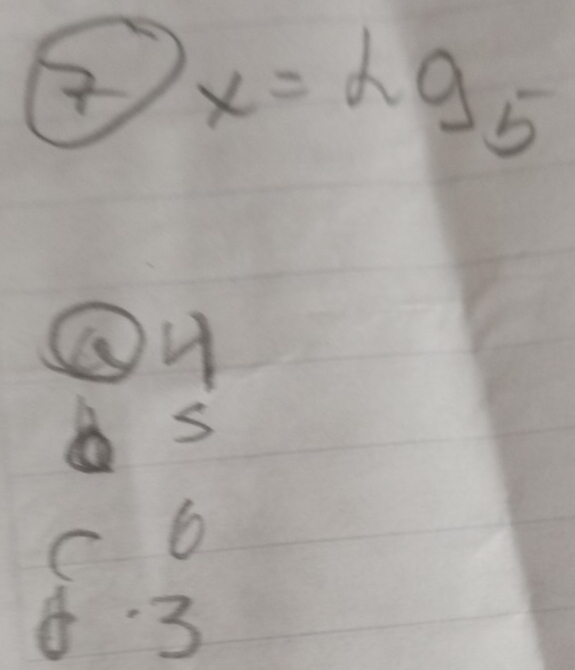 7 x = Lg 5
a 4
b 5
c 6
d . 3